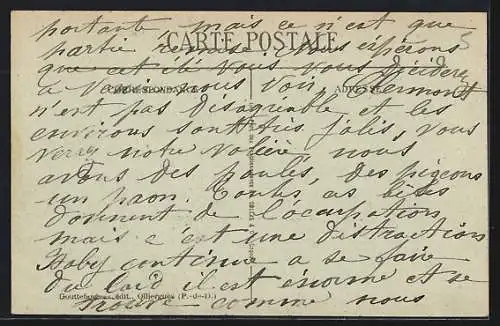 portante, mais ce n'est que
partie remise. Nous espérons
CARTE POSTALE
que cet été vous vous déciderez
à venir nous voir, Clermont
CORRESPONDANCE
ADRESSE
n'est pas désagréable et les
environs sont très jolis, vous
verrez notre volière, nous
avons des poules, des pigeons
un paon. Toutes ces bêtes
donnent de l'ocupation
mais c'est une distraction
Toby continue a se faire
du lard il est énorme et se
Gouttefangeas, édit., Olliergues (P.-de-D.)
trouve comme nous